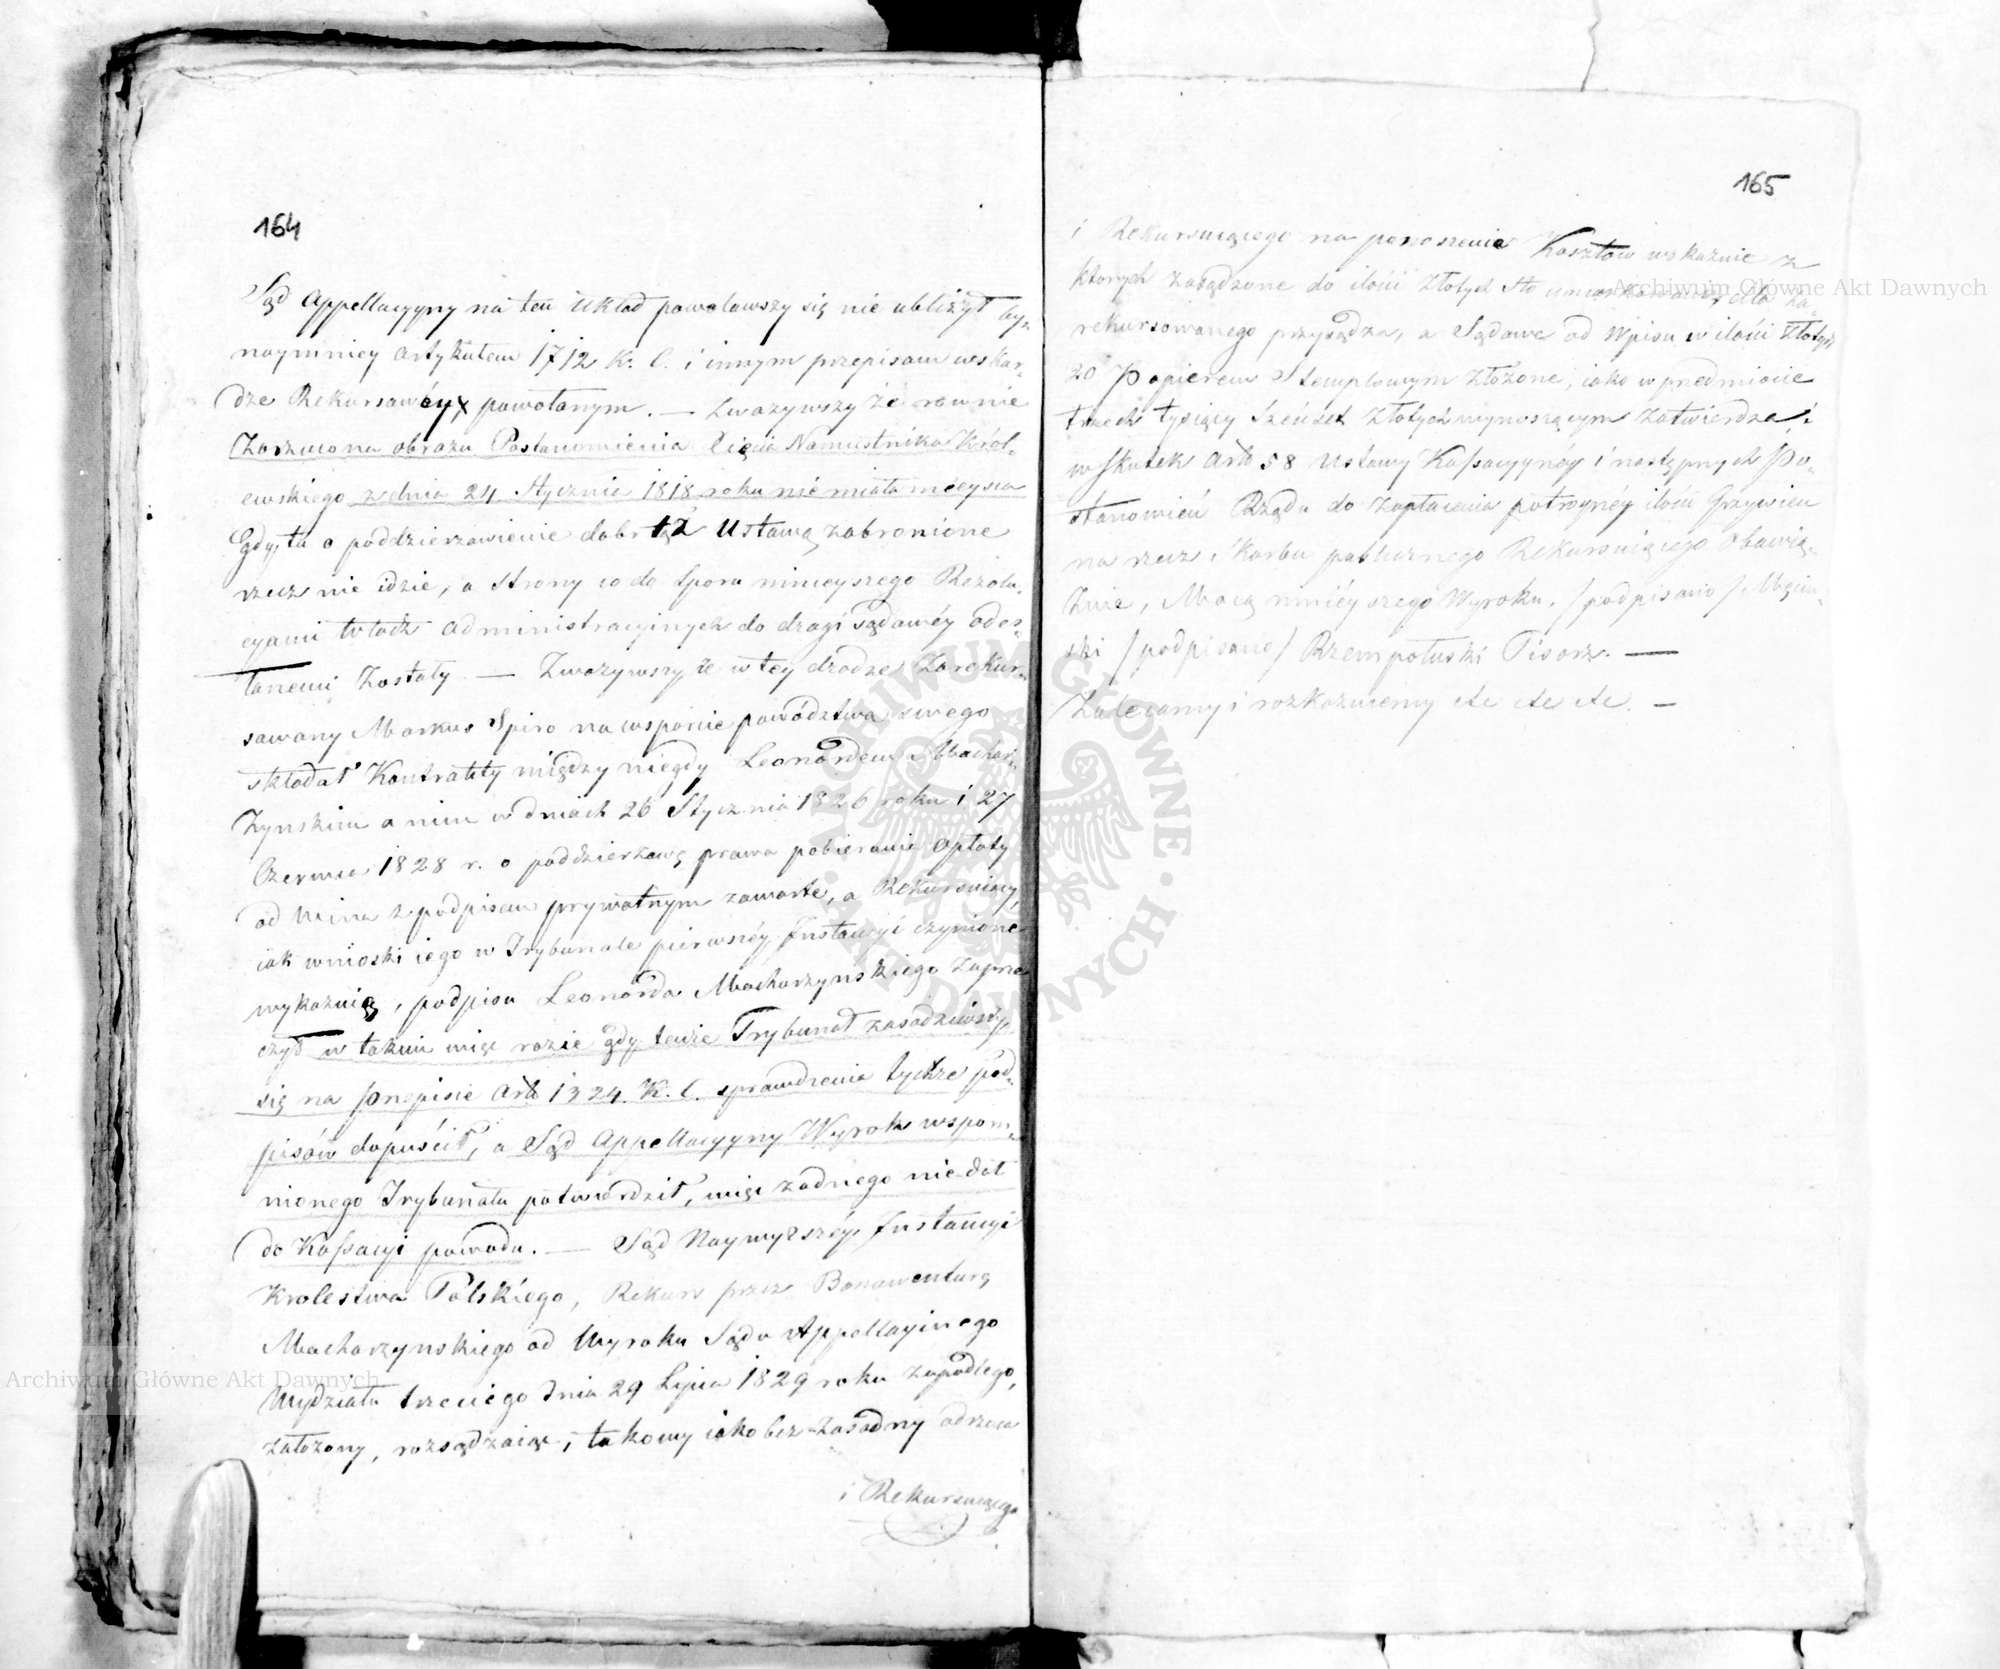 164
Sąd Appellacyyny na ten Układ powoławszy się nie ubliżył by„
naymniey artykułem 1712 K. C. i innym przepisom w skar„
dze Rekursowéy powołanym. — Zważywszy że rownie
Zarzucona obraza Postanowienia Xięcia Namiestnika Król„
ewskiego z dnia 24 Stycznia 1818 roku nie miała mieysca
Gdy tu o poddzierzawienie dobr tą Ustawą zabronione
rzecz nie idzie, a strony co do Sporu ninieyszego Rezolu„
cyami Władz administracyinych do drogi sądowéy odes„
łanemi Zostały — Zważywszy że w tey drodze Zarekur„
sowany Markus Spiro na wsparcie powództwa swego
składał Kontrakty między niegdy Leonardem Machar„
zynskim a nim w dniach 26 Stycznia 1826 roku i 27
Czerwca 1828 r. o poddzierżawę prawa pobierania opłaty
od wina z podpisem prywatnym zawarte, a Rekursuiący
iak wnioski iego w Trybunale pierwszéy Instancyi czynione
wykazuią, podpisu Leonarda Macharzynskiego zaprze
czył w takim więc razie gdy tenże Trybunał zasadziwszy
się na przepisie art 1324. K. C. sprawdzenia tychże pod„
pisów dopuścił, a Sąd Appellacyyny Wyrok wspom„
nionego Trybunału potwierdził, więc żadnego nie dał
do Kassacyi powodu. — Sąd Naywyższéy Instancyi
Krolestwa Polskiego, Rekurs przez Bonawenturę
Macharzynskiego od Wyroku Sądu Appellacyinego
Wydziału trzeciego dnia 29 Lipca 1829 roku zapadłego,
założony, rozsądzaiąc, takowy iako bez-zasadny odrzuca
i Rekursuiącego
165
i Rekursuiącego na ponoszenie Kosztów wskazuie z
ktorych zasądzone do ilości Złotych Sto umiarkowawszy dla Za„
rekursowanego przysądza, a Sądowe od Wpisu w ilości Złotych
20 Papierem Stemplowym złożone, iako w przedmiocie
trzech tysięcy Sześćset Złotych wynoszącym zatwierdza, i
w Skutek Art 58 Ustawy Kassacyyney i następnych Po„
stanowień Rządu do zapłacenia potroynéy ilości Grzywien
na rzecz Skarbu publicznego Rekursuiącego obowią„
zuie, Mocą ninieyszego Wyroku. /podpisano/
ski /podpisano/ Rzempołuski Pisarz. —
Zalecamy i rozkazuiemy etc etc etc. —
Archiwum Główne Akt Dawnych
Archiwum Główne Akt Dawnych
ARCHIWUM GŁÓWNE AKT DAWNYCH